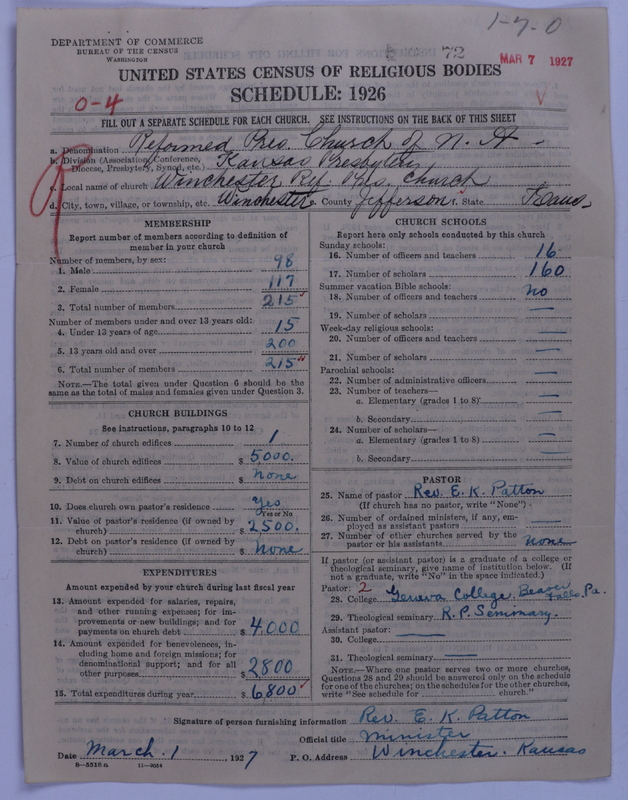 1-7-0
DEPARTMENT OF COMMERCE
BUREAU OF THE CENSUS
WASHINGTON
72
MAR 7 1927
UNITED STATES CENSUS OF RELIGIOUS BODIES
SCHEDULE: 1926
0-4
FILL OUT A SEPARATE SCHEDULE FOR EACH CHURCH. SEE INSTRUCTIONS ON THE BACK OF THIS SHEET
a. Denomination Reformed Pres. Church of N. A.
b. Division (Association, Conference, Diocese, Presbytery, Synod, etc.) Kansas Presbytery
c. Local name of church Winchester Ref. Pres. Church
d. City, town, village, or township, etc. Winchester e. County Jefferson f. State Kans.
MEMBERSHIP
Report number of members according to definition of
member in your church
Number of members, by sex:
1. Male 98
2. Female 117
3. Total number of members 215
Number of members under and over 13 years old:
4. Under 13 years of age 15
5. 13 years old and over 200
6. Total number of members 215
NOTE.—The total given under Question 6 should be
same as the total of males and females given under Question 3.
CHURCH BUILDINGS
See instructions, paragraphs 10 to 12
7. Number of church edifices 1
8. Value of church edifices $ 5000.
9. Debt on church edifices $ None
10. Does church own pastor's residence Yes
Yes or No
11. Value of pastor's residence (if owned by
church) $ 2500.
12. Debt on pastor's residence (if owned by
church) $ None
EXPENDITURES
Amount expended by your church during last fiscal year
13. Amount expended for salaries, repairs,
and other running expenses; for im-
provements or new buildings; and for
payments on church debt $ 4,000
14. Amount expended for benevolences, in-
cluding home and foreign missions; for
denominational support; and for all
other purposes $ 2800
15. Total expenditures during year $ 6,800
CHURCH SCHOOLS
Report here only schools conducted by this church
Sunday schools:
16. Number of officers and teachers 16
17. Number of scholars 160
Summer vacation Bible schools:
18. Number of officers and teachers no
19. Number of scholars —
Week-day religious schools:
20. Number of officers and teachers —
21. Number of scholars —
Parochial schools:
22. Number of administrative officers —
23. Number of teachers—
a. Elementary (grades 1 to 8) —
b. Secondary —
24. Number of scholars—
a. Elementary (grades 1 to 8) —
b. Secondary —
PASTOR
25. Name of pastor Rev. E. K. Patton
(If church has no pastor, write "None")
26. Number of ordained ministers, if any, em-
ployed as assistant pastors —
27. Number of other churches served by the
pastor or his assistants None
If pastor (or assistant pastor) is a graduate of a college or
theological seminary, give name of institution below. (If
not a graduate, write "No" in the space indicated.)
Pastor: 2
28. College Geneva College, Beaver Falls, Pa.
29. Theological seminary R. P. Seminary.
Assistant pastor: —
30. College
31. Theological seminary —
NOTE.—Where one pastor serves two or more churches,
Questions 28 and 29 should be answered only on the schedule
for one of the churches; on the schedules for the other churches,
write "See schedule for church."
Signature of person furnishing information Rev. E. K. Patton
Official title Minister
Date March 1, 1927 P. O. Address Winchester, Kansas
8-5518 a 11-9034